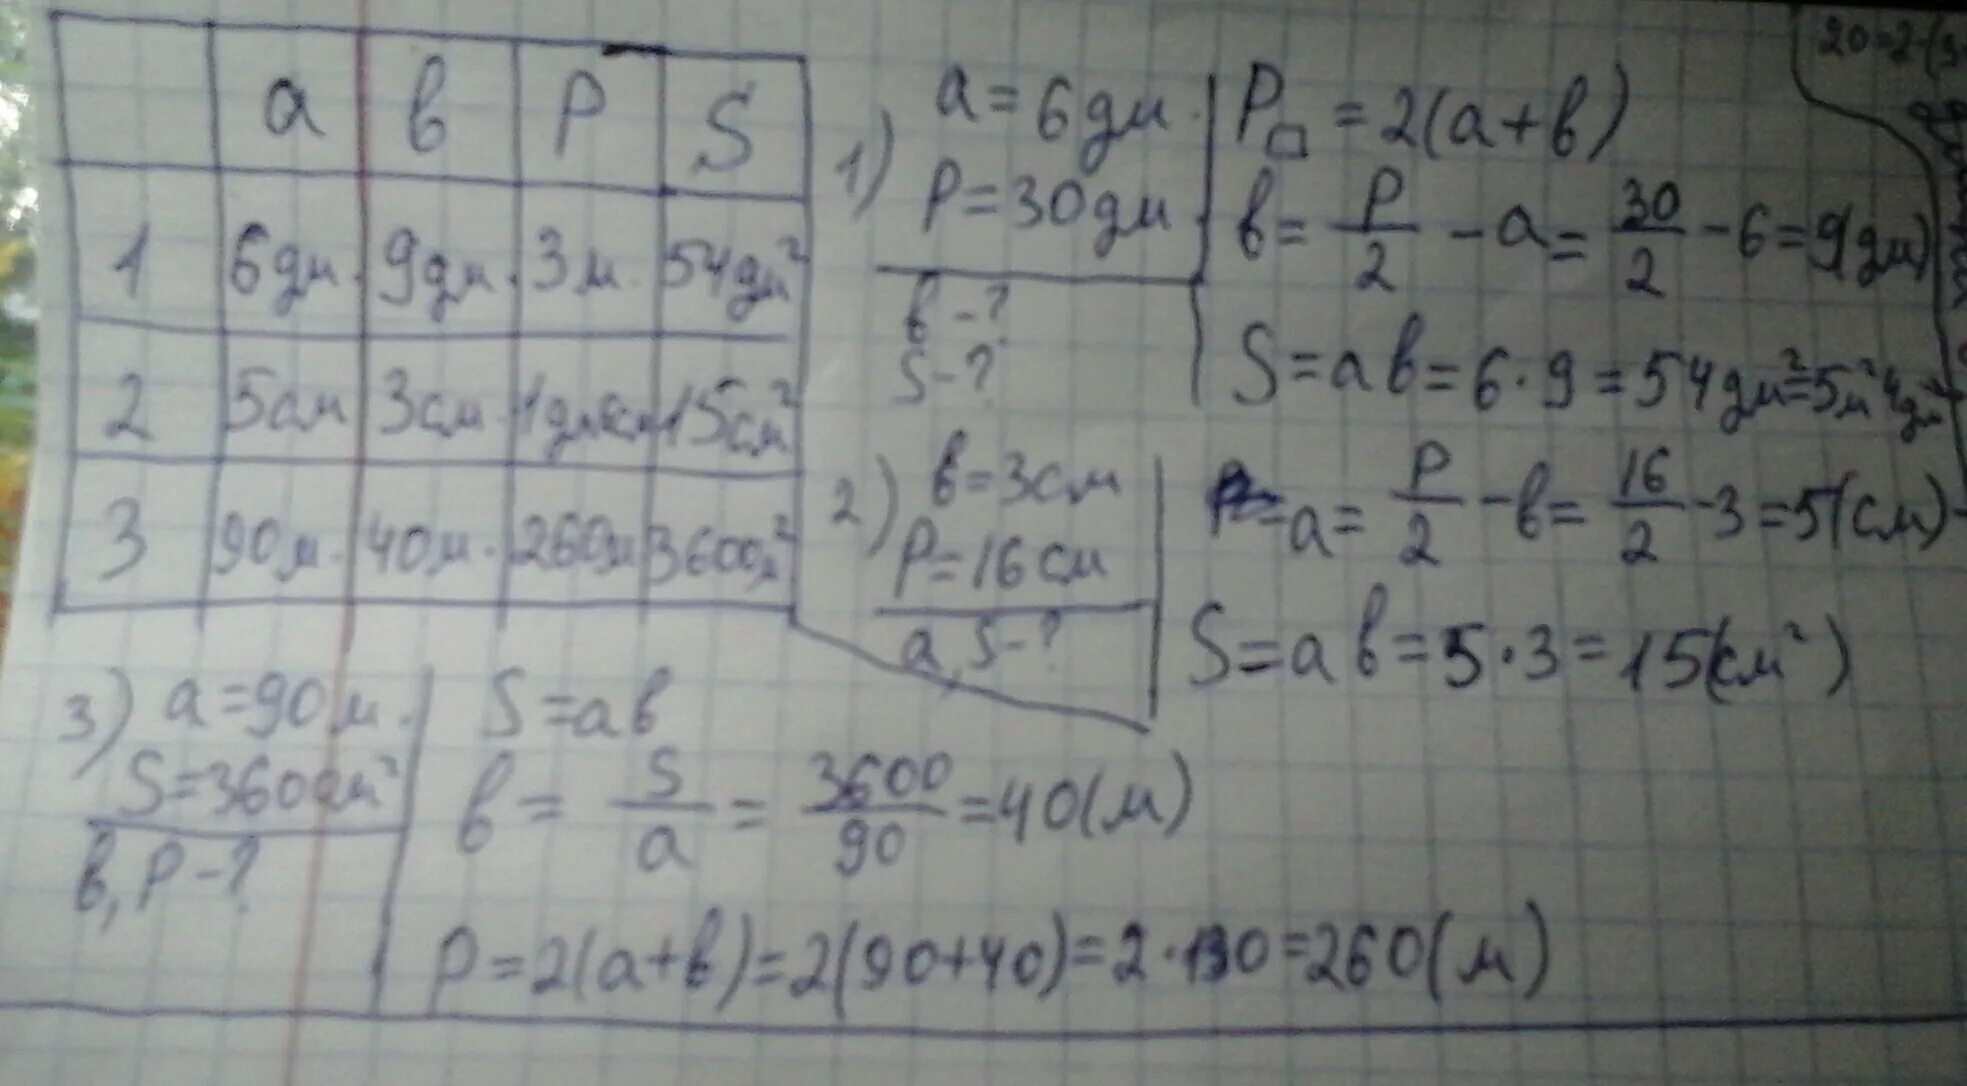 a в P S
1 6дм. 9дм. 3м. 54дм²
2 5см 3см. 1дм6см 15см²
3 90м. 40м. 260м 3600м²
1) a=6дм.
P=30дм
в-?
S-?
P□=2(a+в)
в=P/2-a=30/2-6=9(дм)
S=aв=6·9=54дм²=5м²4дм²
2) в=3см
P=16см
a,S-?
a=P/2-в=16/2-3=5(см)
S=aв=5·3=15(см²)
3) a=90м.
S=3600м²
в,P-?
S=aв
в=S/a=3600/90=40(м)
P=2(a+в)=2(90+40)=2·130=260(м)